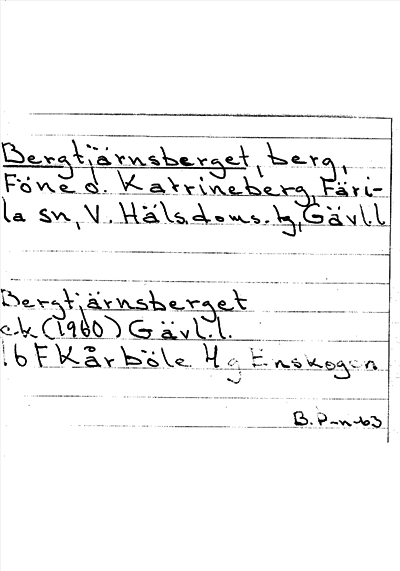 Bergtjärnsberget, berg,
Föne o. Katrineberg, Färi-
la sn, V. Häls. doms. tg, Gävl.l
Bergtjärnsberget
e.k (1960) Gävl.l.
16 F Kårböle 4 g Enskogen